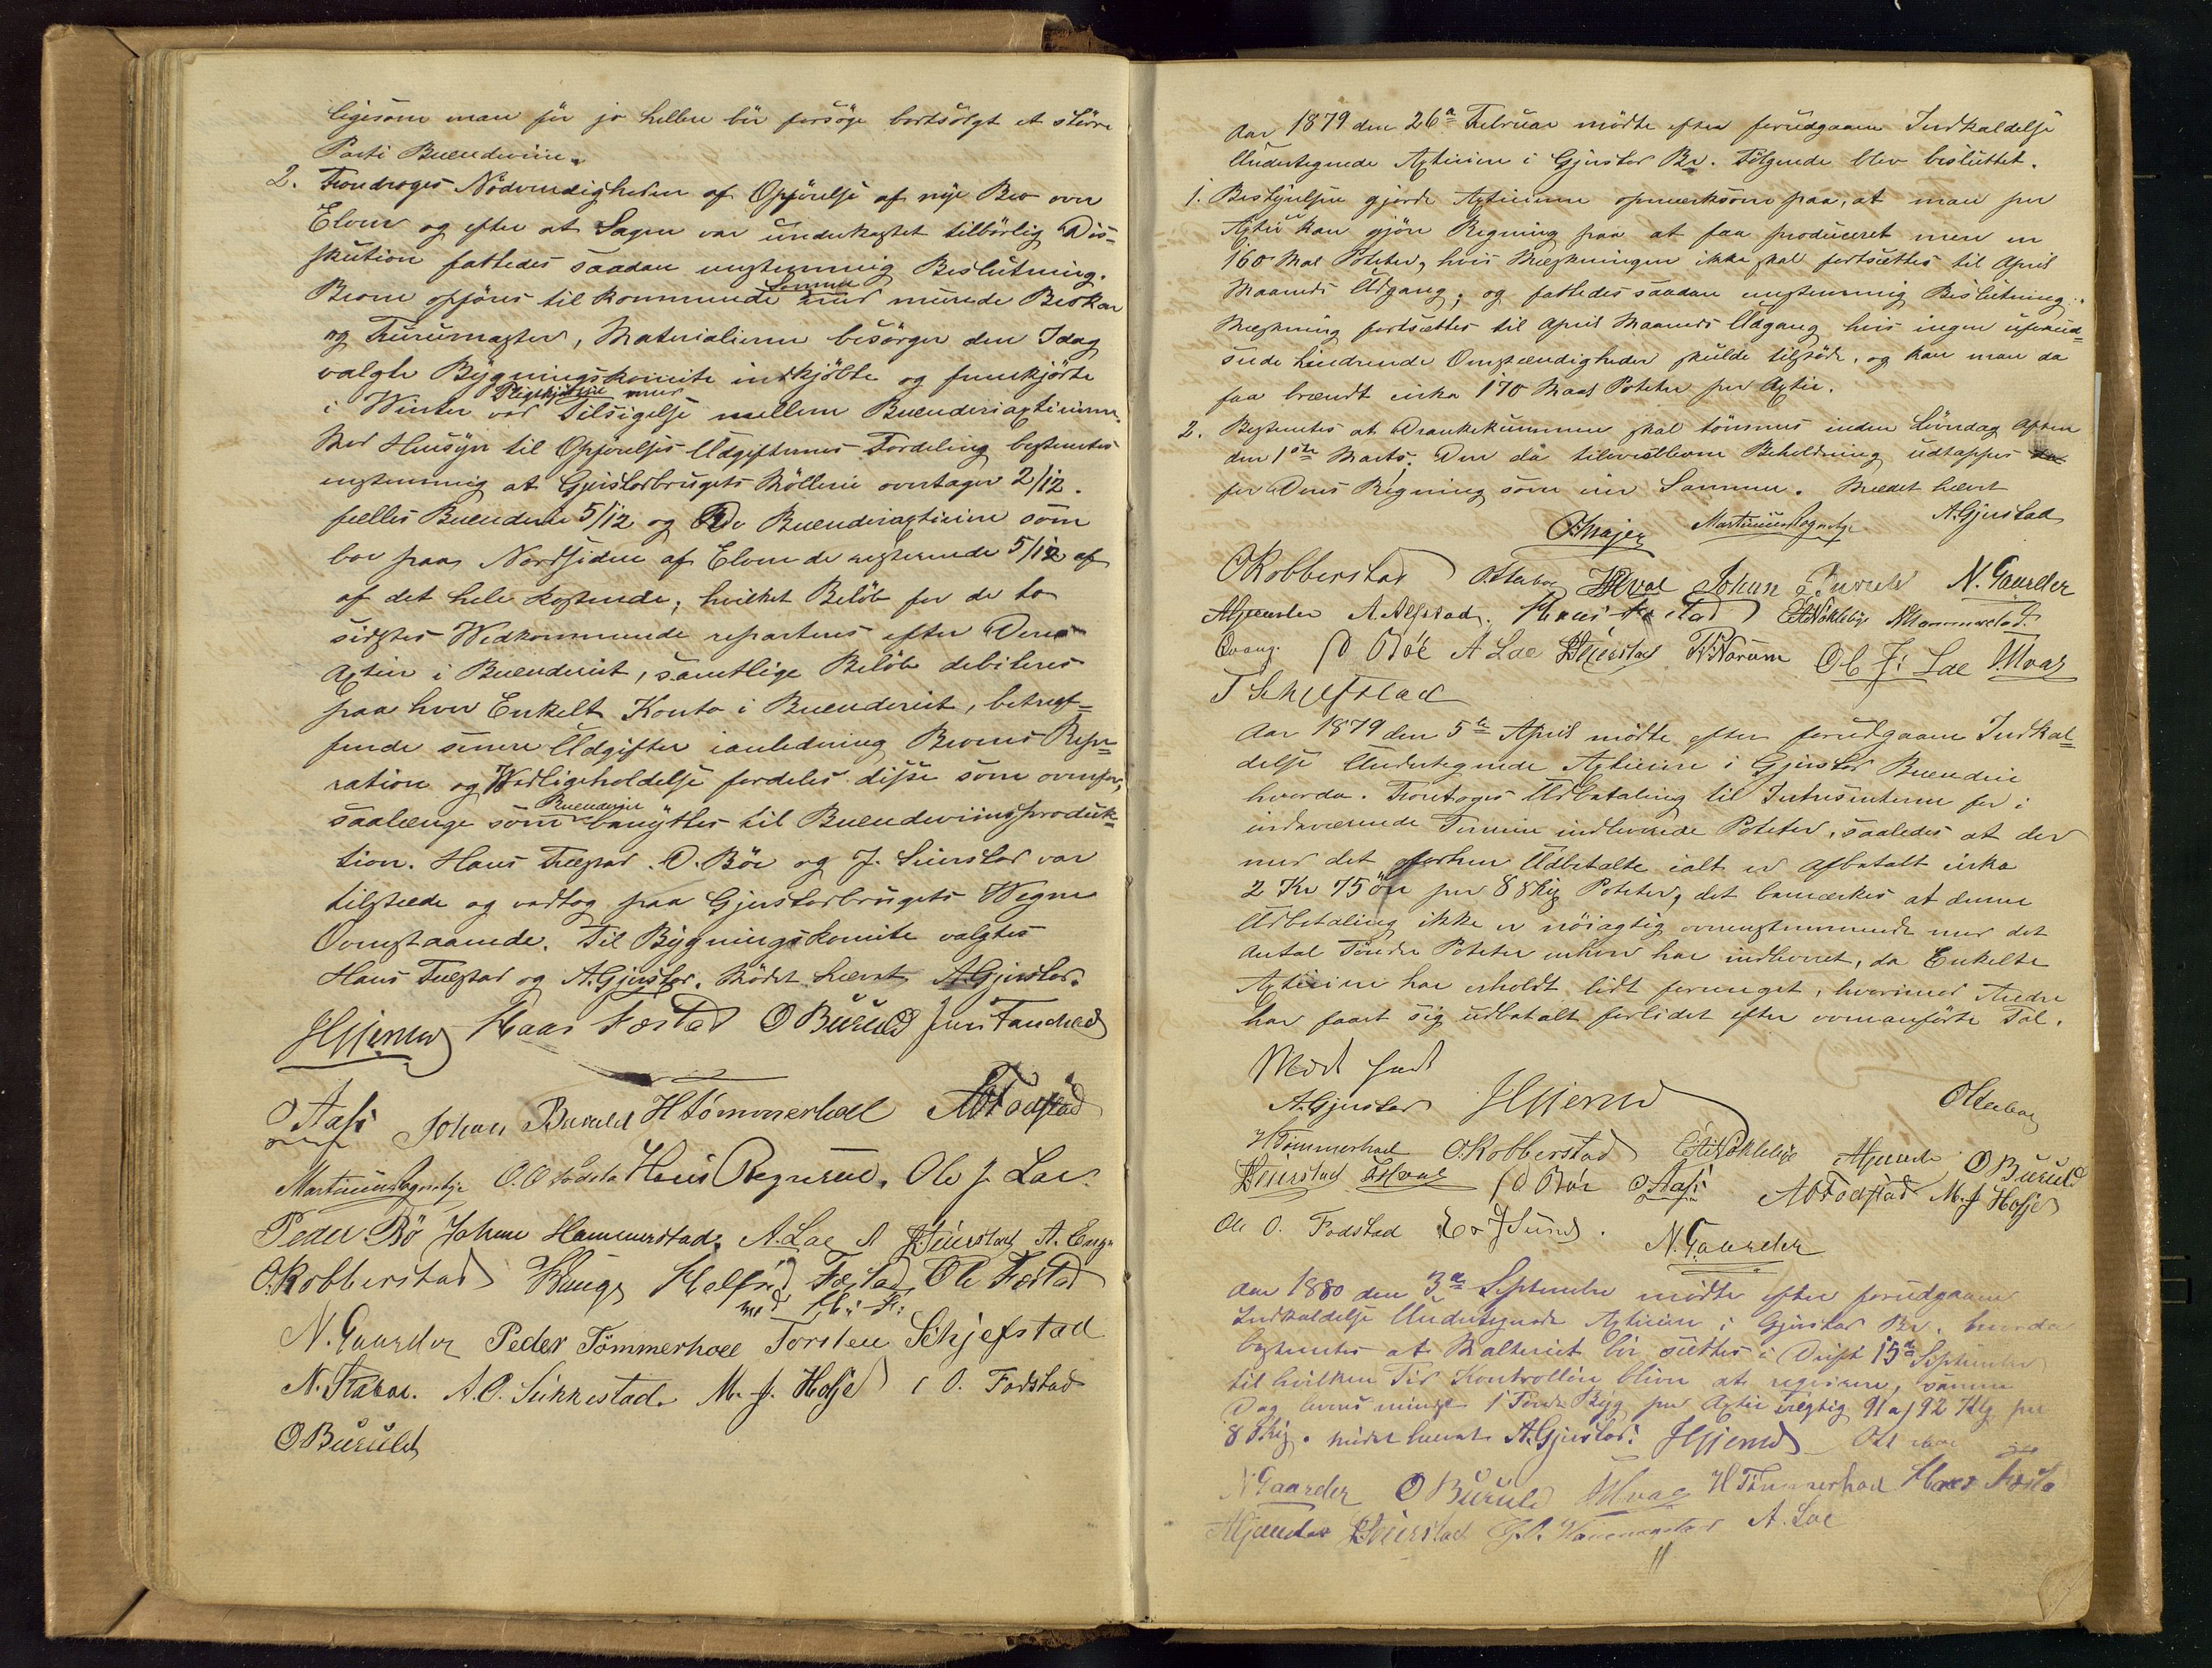 ligesom man før jo hellere bør forsøge bortsolgt et større
Parti Brændeviin.
2. Frondroges Nødvendigheden af Opførelse af nye Bro over
Elven og efter at Sagen var underkastet tilbørlig Dis=
skution fattedes saadan enstemmig Beslutning.
Broen opføres til kommende Sommer med murede Brokar
og Furumaster, Materialierne besørger den Idag
valgte Bygningskomite indkjøbte og fremkjørte
i Winter ved Pligtkjørsel med Tilsigelse mellem Brænderiaktieierne.
Med Hensyn til Opførelses Udgifternes Fordeling bestemtes
enstemmig at Gjerstadbrugets Mølleri overtager 2/12.
fælles Brænderi 5/12 og De Brænderiaktieiere som
bor paa Nordsiden af Elven de resterende 5/12 af
af det hele kostende, hvilket Beløb for de to
sidstes Wedkommende reparteres efter Deres
Aktier i Brænderiet, samtlige Beløb debiteres
paa hver Enkelt Konto i Brænderiet, betræf=
fende senere Udgifter ianledning Broens Repa=
ration og Wedligeholdelse fordeles disse som ovenfor,
saalænge som Brænderiet benyttes til Brændeviinsproduk=
tion. Hans Fæstad. O. Bøe og J. Seierstad var
tilstede og vedtog paa Gjerstadbrugets Wegne
Ovenstaaende. Til Bygningskomite valgtes
Hans Fæstad og A. Gjerstad. Mødet hævet A. Gjerstad.
HGjernes Hans Fæstad O Burud Juu Fauchald
O Aass Johan Burud H Tømmerhoel AO Fodstad
Martinius Lognetje O. O Hans Regnerud. Ole J. Loe.
Peder Bø Johan Hammerstad. A. Loe A J. Seierstad A. Enge
O. Kobberstad Hauge Helge Fæstad Ole Fæstad
med
N. Gaarder Peder Tømmerhoel Torsten Schjefstad
N. Stabo. A. O. Sukkestad. M. J. Hofje O. Fodstad
O Burud
Aar 1879 den 26de Februar mødte efter forudgaaen Indkaldelse
Undertegnede Aktieiere i Gjerstad Br. Følgende blev besluttet.
1. Bestyrelsen gjorde Aktieierne opmærksom paa, at man per
Aktie kan gjøre Regning paa at faa produceret mere en
160 Maal Poteter, hvis Mæskningen ikke skal fortsættes til April
Maaneds Udgang; og fattedes saadan enstemmig Beslutning:
Mæskning fortsættes til April Maaneds Udgang hvis ingen uforud=
seede hindrende Omstændigheder skulde tilstøde, og kan man da
faa brændt cirka 170 Maal Poteter per Aktie.
2. Bestemtes at Drankekummen skal tømmes inden Løverdag Aften
den 1ste Marts. Den da tiloversblevne Beholdning udtappes
for Deres Regning som eier Sammen. Mødet hævet
OMajer Martinius Lognetje A. Gjerstad
O Kobberstad O. Stabo Hval Johan Burud N. Gaarder
A. Alfstad. Hans Fæstad N Hammerstad.
Qvang. O Bøe A Loe J Seierstad P Narum Ole J: Loe Hval
T Schjefstad
Aar 1879 den 5te April mødte efter forudgaaen Indkal=
delse Undertegnede Aktieiere i Gjerstad Brænderie
hvorda. Foretoges Udbetaling til Intresenterne for i
indeværende Termin indleverede Poteter, saaledes at der
med det forhen Udbetalte ialt er afbetalt cirka
2 Kr 75 øre per 8 Skjp Poteter, det bemærkes at denne
Udbetaling ikke er nøiagtig overensstemmende med det
Antal Tønder Poteter enhver har indleveret, da Enkelte
Aktieiere har erholdt lidt formeget, hvorimod Andre
har faaet sig udbetalt forlidet efter ovenanførte Tal.
Mødet hævet
A. Gjerstad HGjernes O Stabo
H Tømmerhoel O. Kobberstad O Burud
J Seierstad Hval O Bøe O Aass AO Fodstad M. J Hofje
Ole O. Fodstad J Sund. N. Gaarder
Aar 1880 den 3de September mødte efter forudgaaen
Indkaldelse Undertegnede Aktieiere i Gjerstad Br. hvorda
bestemtes at Malteriet bør sættes i Drift 15de September
til hvilken Tid Kontrollen bliver at requirere, samme
Dag leveres mindst 1 Tønde Byg per Aktie vægtig 91 a 92 Klg per
8 Skjp. mødet hævet A. Gjerstad. HGjernes O Stabo
N Gaarder O Burud Hval H Tømmerhoel Hans Fæstad
J Seierstad Hammerstad A. Loe